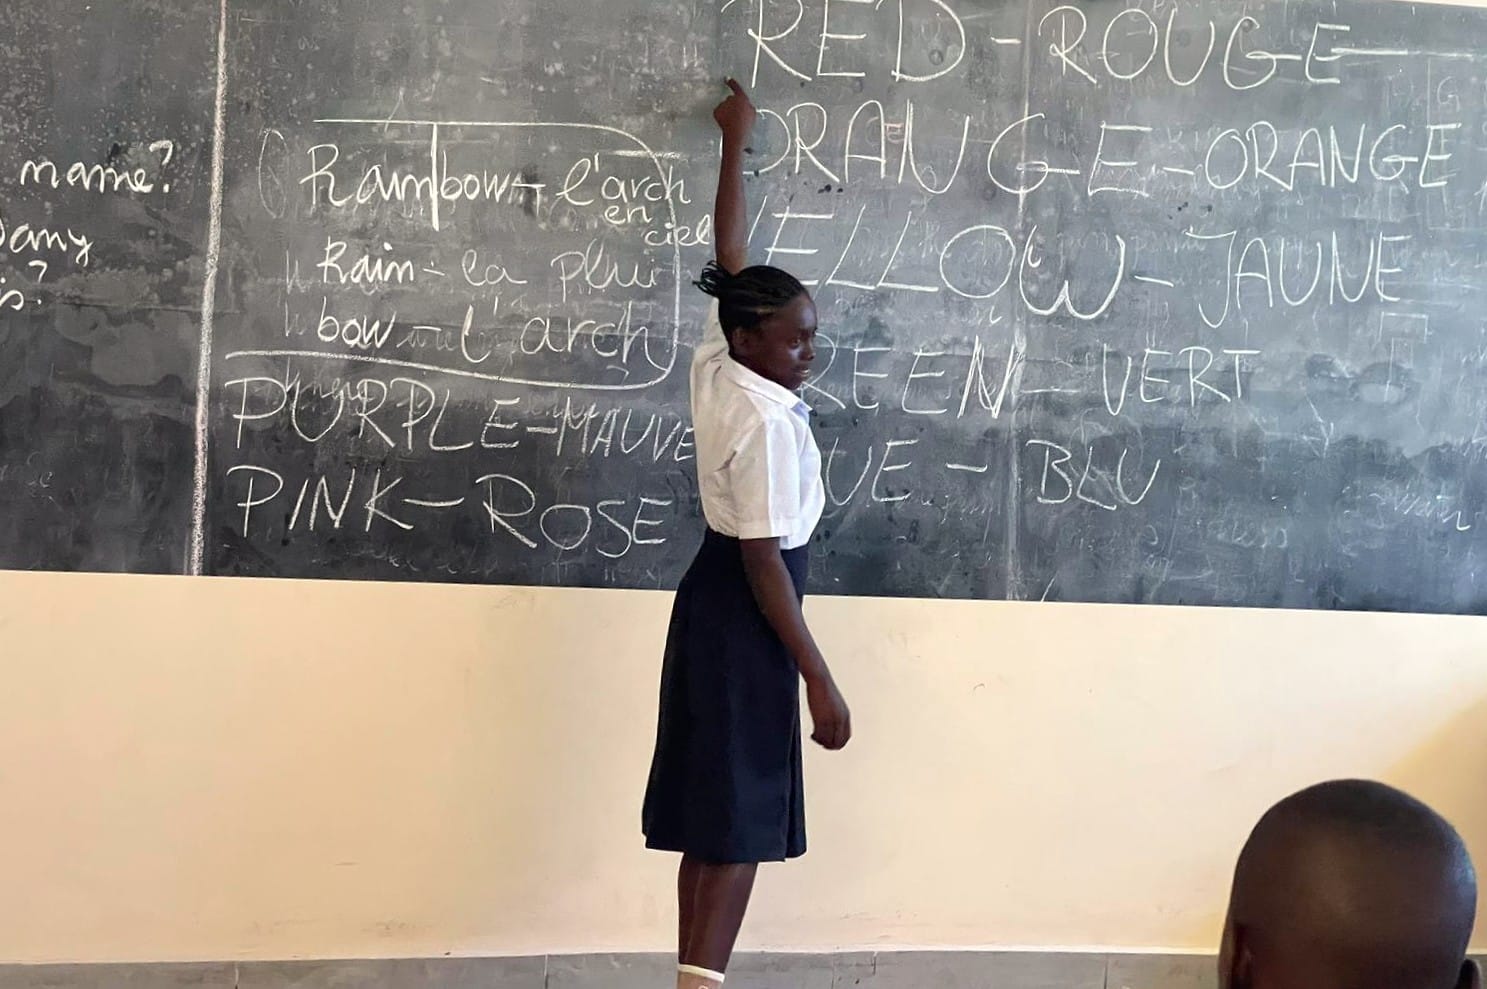 name?
Rainbow - l'arch
en
ciel
Rain - la plui
bow - l'arch
PURPLE - MAUVE
PINK - ROSE
RED - ROUGE
ORANGE - ORANGE
YELLOW - JAUNE
REEN - VERT
UE - BLU